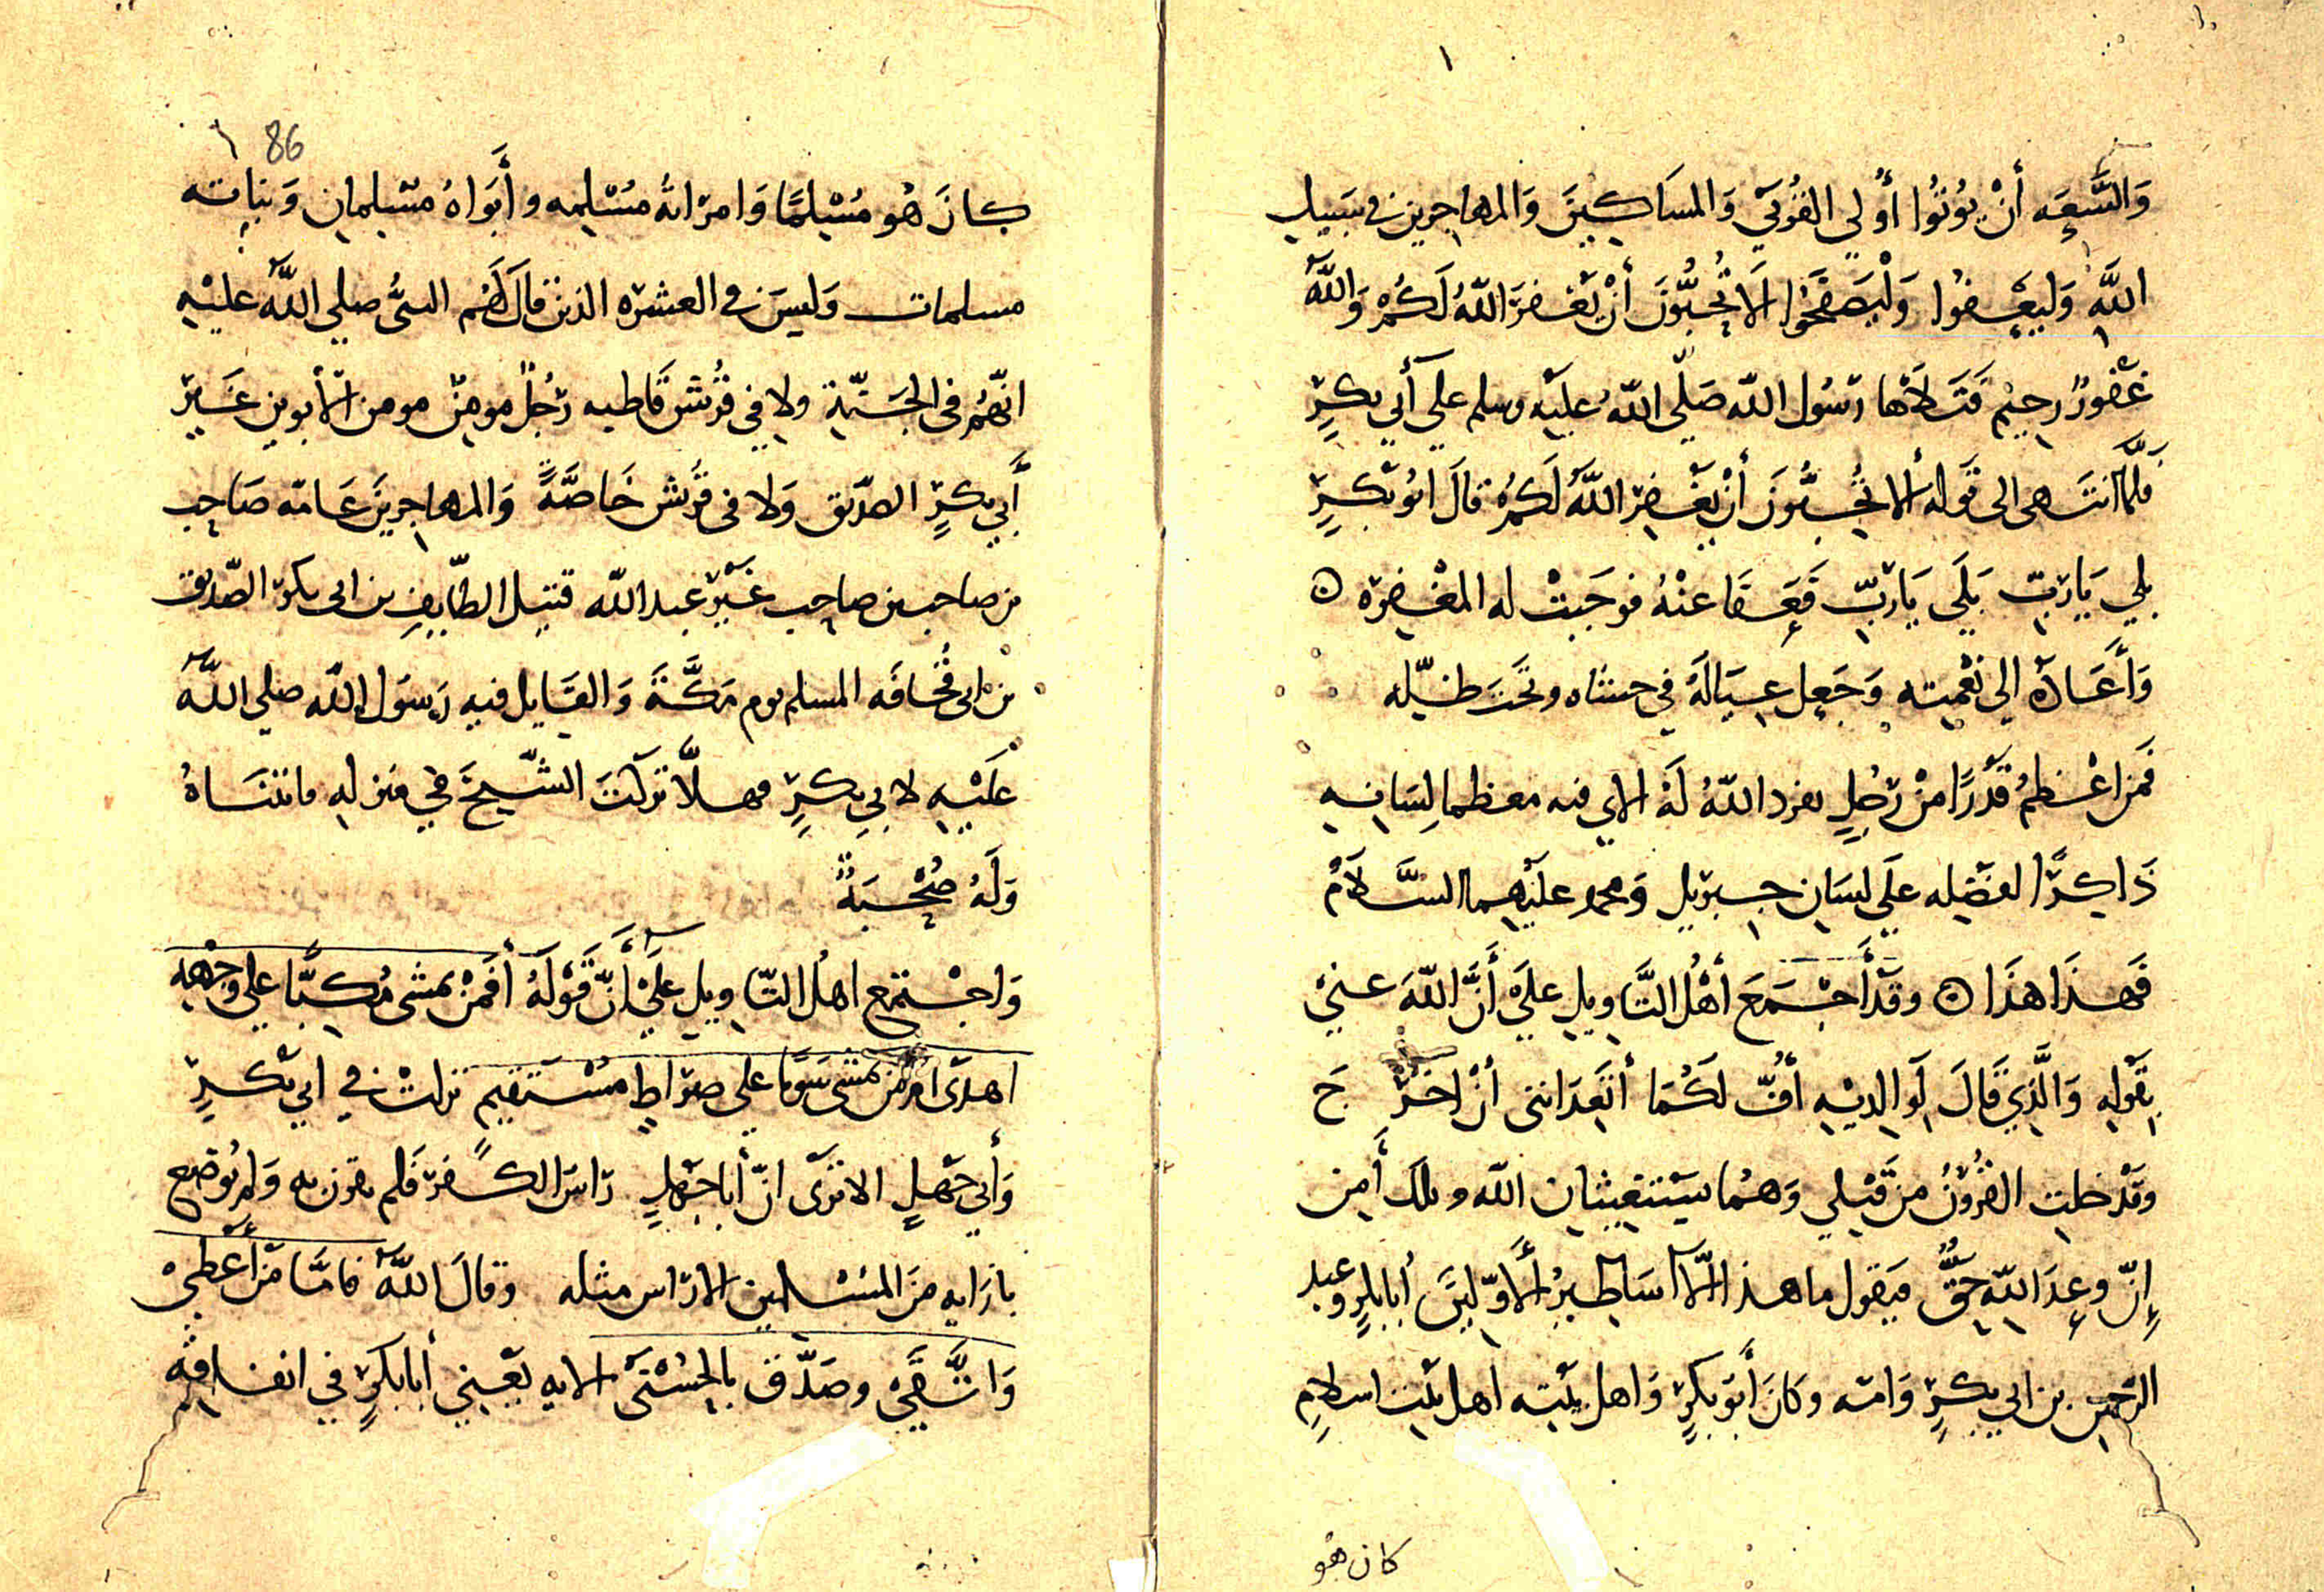 ١
وَالسَّعَه أَنْ يُوتُوا أُولي القُربَي وَالمسَاكِينَ وَالمهاجرين في سَبيل
اللَّهِ وَليَعْفُوا وَلْيَصْفَحُوا الَا تُحِبُّونَ أنْ يَغْفِرَ اللّهُ لَكُمْ وَاللَّهُ
غَفُورٌ رحِيْم فَتَلَاهَا رَسُول اللّه صَلّى اللّهُ عليْه وسلم علَي أَبي بكرٍ
فلمَّا انتَهى الى قَوله ألا تُحِبُّونَ أنْ يَغْفِر اللَّهُ لَكُمْ قالَ ابُو بَكرٍ
بلي يَا رَبِّ بَلَي يَا رَبِّ فَعَفَا عنْهُ فوجَبتْ له المغْفِره ۞
وَأَعَادَهُ الي نعْمته وَجَعل عيَالَهُ في حشاه وتَحتَ ظلّه
فَمَن اعْظمُ قَدْرًا منْ رَجُلٍ يفرد اللّهُ لَهُ الاي فيه معظما لِسَانِهِ
ذَاكِرًا لفضْله علَي لسَان جبريل وَمحمد عليْهما السَّلَامُ
فَهذَا هذَا ۞ وقَدْ أَجْمَعَ أهْلُ التَّاويل علَيْ أَنَّ اللّهَ عنيْ
بقَوْلِهِ وَالَّذِي قَالَ لوَالِديْهِ أُفٍّ لَكُمَا أتَعِدَانني أنْ اخرَجَ
وقَدْ خلت القُرُوْنُ منْ قَبْلِي وَهمَا يسْتغيثان اللّه ويلك أَمِن
إِنّ وعدَ اللّه حَقٌّ فيَقول ما هذا الّا أسَاطيرُ الأوّليْنَ أبا بكرٍ وعبد
الرّحمن بن ابي بكرٍ وَامّه وكانَ أَبو بَكرٍ وَاهل بيْته اهل بيْت اسلامٍ
كان هُو
86 ١
كانَ هُو مُسْلِمًا وَامرَاتهُ مُسْلِمه وأَبَوَاهُ مُسْلِمان وَبَناته
مسلمات وَليسَ في العشرَه الذين قالَ لَهُم النبىُّ صلي اللَّهُ عليْهِ
انّهُم فى الجَنّةِ ولا في قُرُيش قَاطبه رَجُلٌ مومِنٌ مومن الأبوين غَيْرَ
أَبي بكرٍ الصّدّيق وَلا فى قُرَيش خَاصَّةً وَالمهاجرينَ عَامّه صَاحب
بن صاحب بن صاحب غَيْر عبد اللّه قتيل الطّايفِ بن ابى بكر الصّديق
بن ابى قُحَافَه المسلم يوم مَكَّةَ وَالقَايل فيه رَسوَل اللّه صلي اللَّهُ
علَيْهِ لابي بكرٍ فهلّا تَركْتَ الشّيخَ في منزلهِ ما ننسَاهُ
وَلَهُ صُحْبَةٌ
وَاجْتمع اهْل التّاويل علَيْ أَنّ قَوْلَهُ أَفَمَنْ يمشى مُكبًّا علي وَجْهِه
اهدَى امّن يَمْشى سَويّا علي صرَاطٍ مسْتَقيم نزلتْ في ابي بكرٍ
وَأَبي جَهْلٍ الا ترَى انّ أبا جَهْلٍ رَاس الكُفر فَلم يقرن به وَلم يُوضع
بازَايه منَ المسْلمين الا رَاس مثله وقالَ اللَّهُ فامَّا مَن أَعْطيْ
وَاتَّقَيْ وصَدّق بالحُسْنَى الايه يَعْني أبا بكرٍ في انفاقهِ